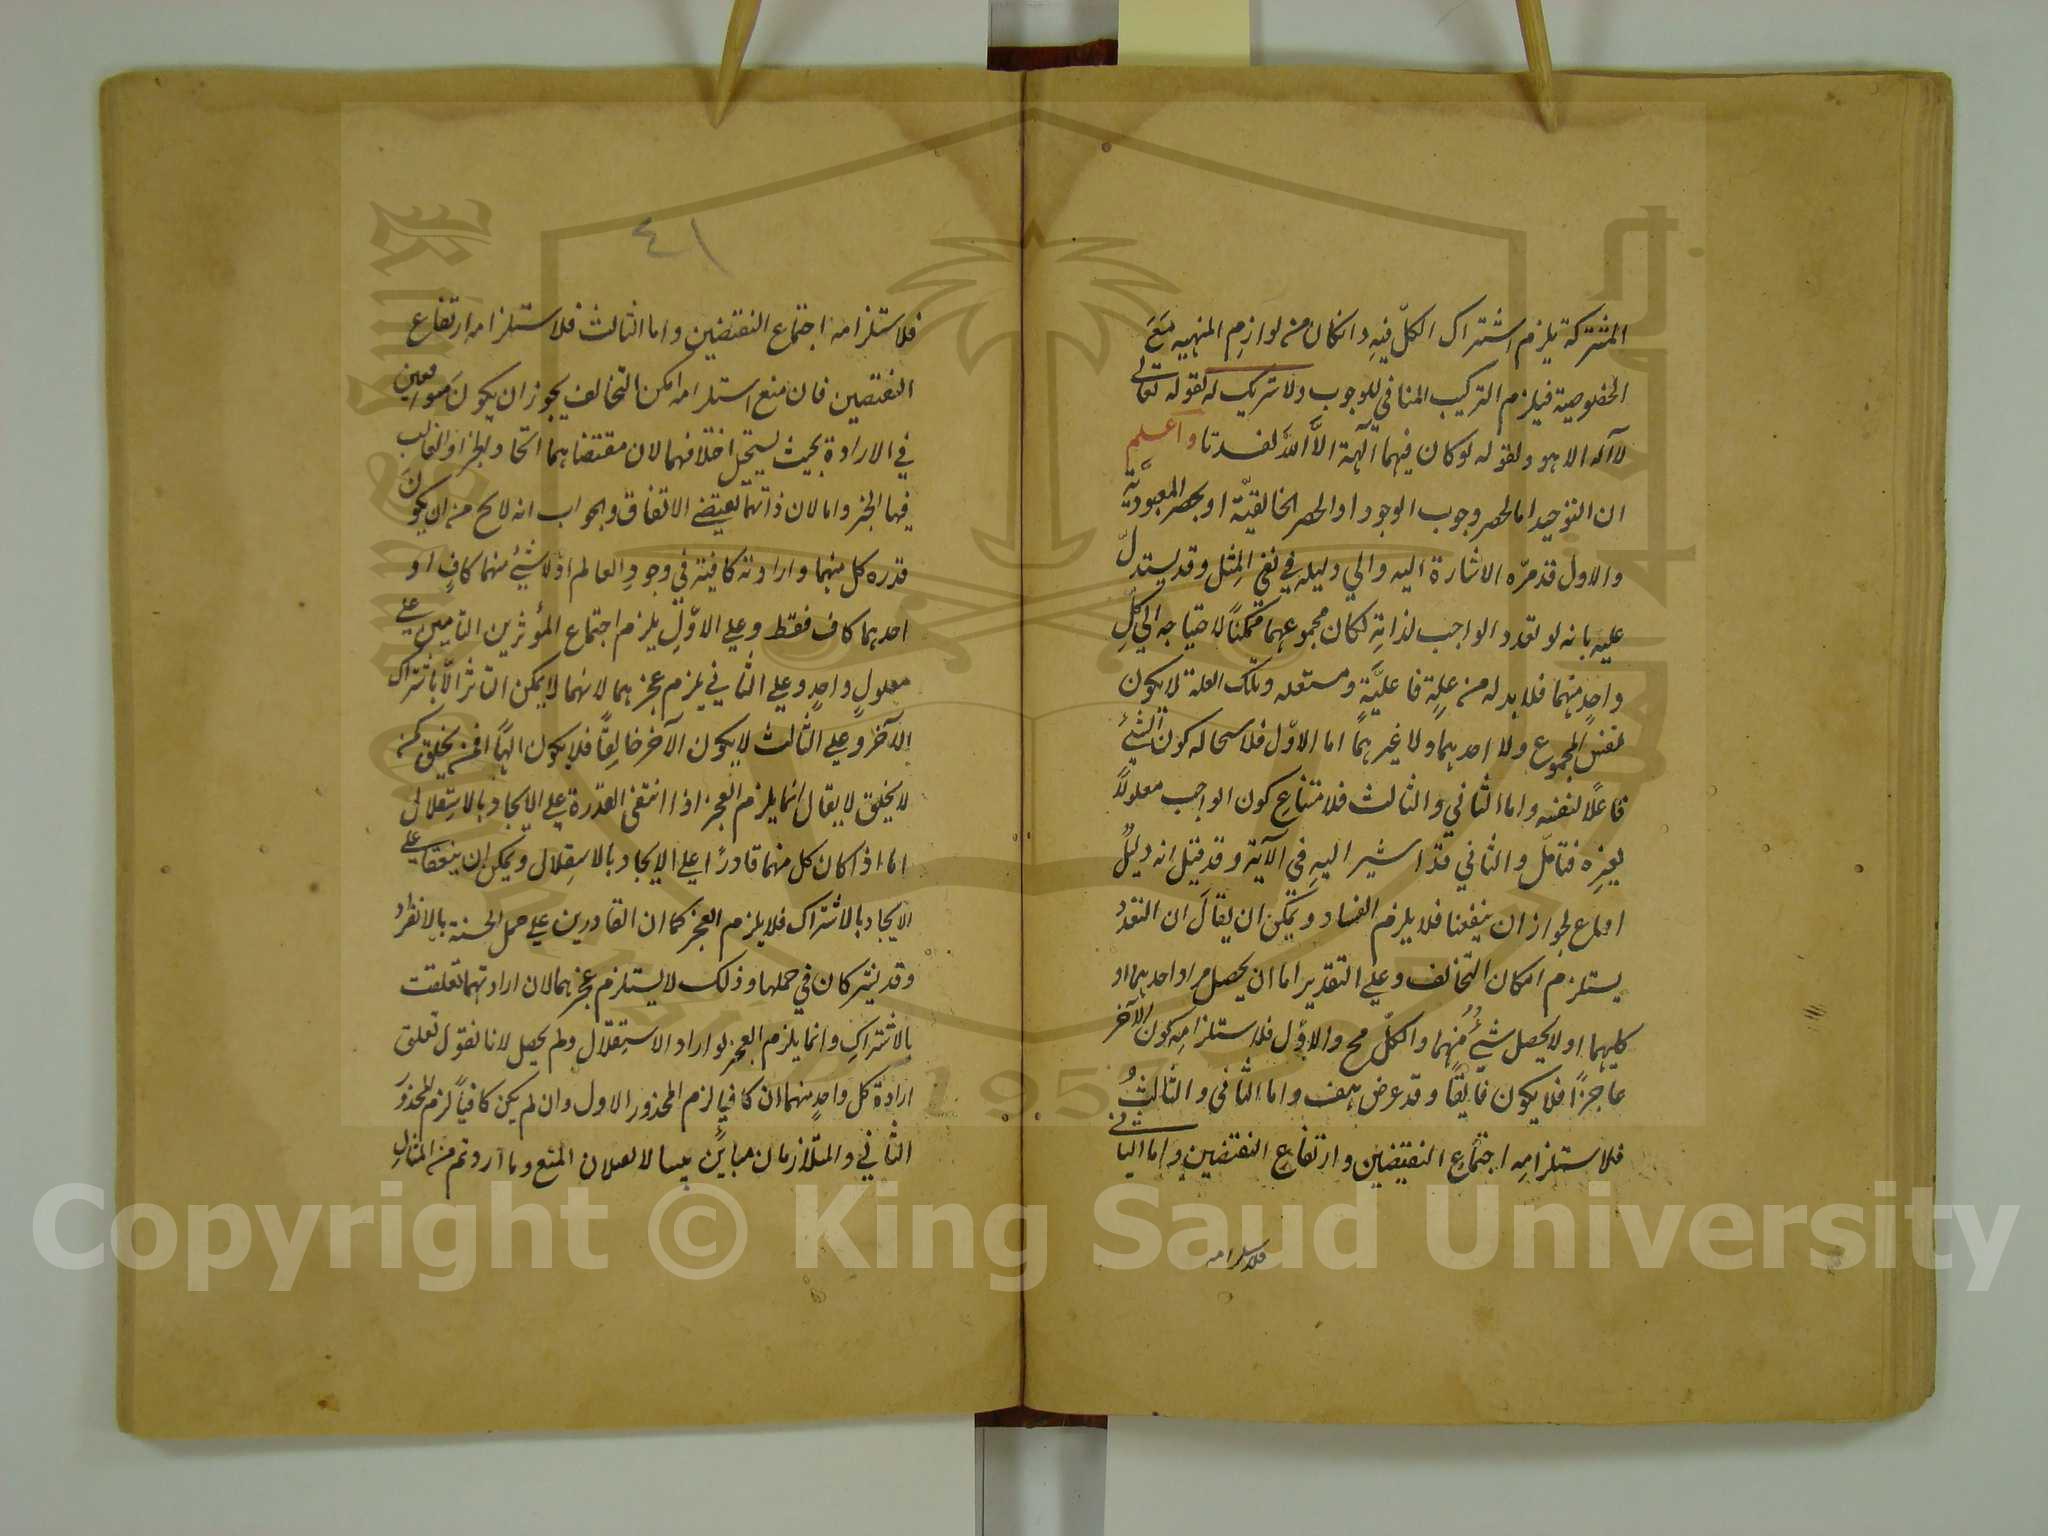 المشتركة يلزم اشتراك الكلّ فيه وانكان من لوازم المنهيه مَعَ
الخصوصية فيلزم التركيب المنافي للوجوب ولا شريك له لقوله تعالى
لا اله الا هو ولقوله لو كان فيهما آلهة الّا اللّه لفسدتا واعلم
ان التوحيد اما لحصر وجوب الوجود او الحصر الخالقيّة او بحصر المعبوديَّة
والاول قد مرّه الاشارة اليه والي دليله في نفي المِثل وقد يستدلّ
عليه بانه لو تعدد الواجب لذاته لكان مجموعهما ممكناً لاحتياجه الي كلِّ
واحدٍ منهما فلا بد له من علةٍ فاعليَّةٍ ومستقله وتلك العلة لا يكون
نفس المجموع ولا احدهما ولا غيرهما اما الاوّل فلاستحاله كون الشئ
فاعلاً لنفسه واما الثاني والثالث فلامتناع كون الواجب معلولاً
لغيره فتامّل والثاني قد اشير اليهِ في الآية وقد قيل انه دليلٌ
اقناع لجواز ان يتفقنا فلا يلزم الفساد ويمكن ان يقالَ ان التعدد
يستلزم امكان التخالف وعلي التقدير اما ان يحصل مراد احدهما او
كليهما او لا يحصل شئٌ منهما والكلّ مح والاوّل فلاستلزامِه كون الآخر
عاجزًا فلا يكون خالقًا وقد عرض هف واما الثاني والثالثُ
فلاستلزامِه اجتماع النقيضين وارتفاع النقيضين واما الثاني
فلاستلزامه
٤١
فلاستلزامه اجتماع النقيضين واما الثالث فلاستلزامه ارتفاع
النقيضين فان منع استلزامه امكن التخالف يجوز ان يكونَ متوافقين
في الارادة بحيث يستحيل اختلافهما لان مقتضاهما اتحاد والغالب
فيها الخير واما لان ذاتهما تقتضي الاتفاق والجواب انه لا مح من ان يكونَ
قدره كل منهما وارادته كافية في وجودِ العالم او لا شئ منهما كافٍ او
احدهما كاف فقط وعلي الاوّلِ يلزم اجتماع المؤثرين التامين علي
معلولٍ واحدٍ وعلي الثاني يلزم عجزهما لانهما لا يمكن التاثر الّا باشتراك
الآخر وعلي الثّالث لا يكون الآخر خالقًا فلا يكون الهًا افمن يخلق كمن
لا يخلق لا يقال انما يلزم العجز اذا انتفي القدرة علي الايجاد بالاستقلال
اما اذا كان كل منهما قادرًا علي الايجاد بالاستقلال ويمكن ان يتفقا علي
الايجاد بالاشتراك فلا يلزم العجز كما ان القادرين علي حمل الخشبة بالانفراد
وقد يشتركان في حملها وذلك لا يستلزم عجزهما لان ارادتهما تعلقت
بالاشتراكِ وانما يلزم العجز لو اراد الاستقلال ولم يحصل لانا نقول تعلق
ارادة كل واحدٍ منهما ان كافيا لزم المحذور الاول وان لم يكن كافياً لزم المحذورَ
الثاني والمتلازمان المنع وما اردتم من المثالِ
Copyright © King Saud University
1957